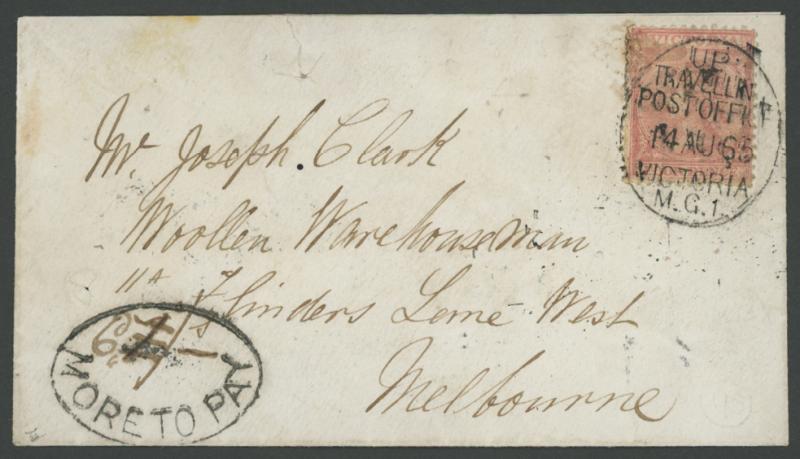 UP
TRAVELLIN
POST OFFICE
14 AU 65
VICTORIA
M.G.1.
Mr. Joseph Clark
Woollen Warehouseman
11A Flinders Lane West
Melbourne
MORE TO PAY